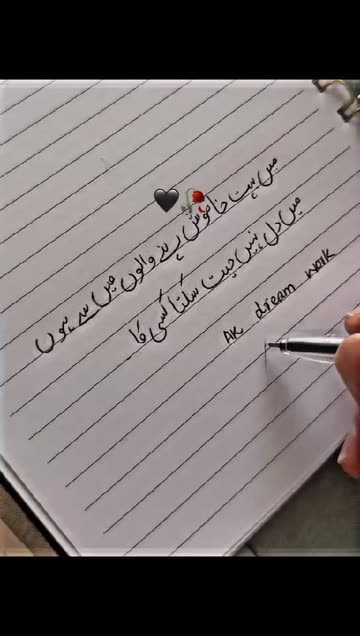 میں بہت خاموش رہنے والوں میں سے ہوں
میں دل نہیں جیت سکتا کسی کا
AK dream work